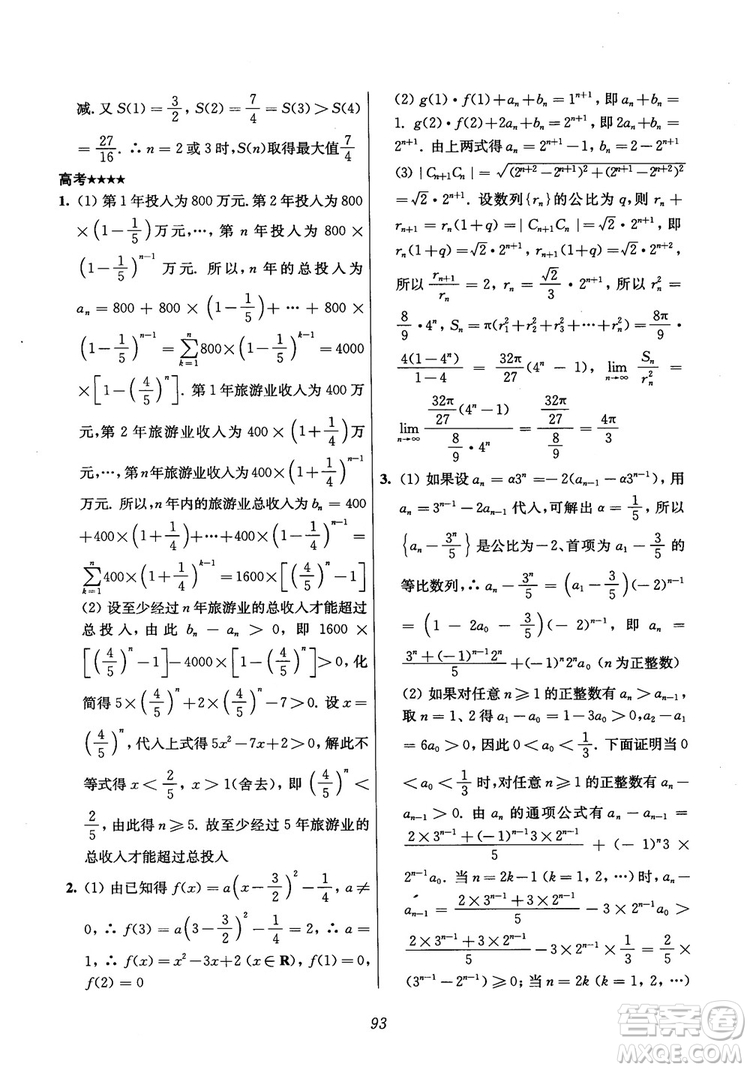 减. 又 S(1) = 3/2, S(2) = 7/4 = S(3) > S(4)
= 27/16. ∴ n = 2 或 3 时, S(n)取得最大值 7/4
高考★★★★
1. (1) 第 1 年投入为 800 万元. 第 2 年投入为 800
× (1 − 1/5) 万元,…, 第 n 年投入为 800 ×
(1 − 1/5)^{n−1} 万元. 所以, n 年的总投入为
a_n = 800 + 800 × (1 − 1/5) + … + 800
× (1 − 1/5)^{n−1} = ∑_{k=1}^{n} 800 × (1 − 1/5)^{k−1} = 4000
× [1 − (4/5)^n]. 第 1 年旅游业收入为 400 万元,
第 2 年旅游业收入为 400 × (1 + 1/4) 万
元,…, 第 n 年旅游业收入为 400 × (1 + 1/4)^{n−1}
万元. 所以, n 年内的旅游业总收入 b_n = 400
+400 × (1 + 1/4) + … + 400 × (1 + 1/4)^{n−1} =
∑_{k=1}^{n} 400 × (1 + 1/4)^{k−1} = 1600 × [(5/4)^n − 1]
(2) 设至少经过 n 年旅游业的总收入才能超过
总投入, 由此 b_n − a_n > 0, 即 1600 ×
[(4/5)^n − 1] − 4000 × [1 − (4/5)^n] > 0, 化
简得 5 × (4/5)^n + 2 × (4/5)^n − 7 > 0. 设 x =
(4/5)^n, 代入上式得 5x² − 7x + 2 > 0, 解此不
等式得 x < 2/5, x > 1(舍去), 即 (4/5)^n <
2/5, 由此得 n ≥ 5. 故至少经过 5 年旅游业的
总收入才能超过总投入
2. (1) 由已知得 f(x) = a(x − 3/2)² − 1/4, a ≠
0, ∴ f(3) = a(3 − 3/2)² − 1/4 = 2, ∴ a =
1, ∴ f(x) = x² − 3x + 2 (x ∈ R), ∴ f(1) = 0,
f(2) = 0
(2) g(1) · f(1) + a_n + b_n = 1^{n+1}, 即 a_n + b_n =
1. g(2) · f(2) + 2a_n + b_n = 2^{n+1}, 即 2a_n + b_n =
2^{n+1}. ∴ 由上两式得 a_n = 2^{n+1} − 1, b_n = 2 − 2^{n+1}
(3) | C_{n+1}C_n | = √((2^{n+2} − 2^{n+1})² + (2^{n+1} − 2^{n+2})²)
= √2 · 2^{n+1}. 设数列{r_n}的公比为 q, 则 r_n +
r_n(1 + q) = | C_{n+1}C_n | = √2 · 2^{n+1}, ∴
r_n(1 + q) = √2 · 2^{n+1}, ∴ r_{n+1}(1 + q) = √2 · 2^{n+2},
所以 r_{n+1}/r_n = 2, ∴ r_n = √2/3 · 2^{n+1}, 所以 r_n² =
8/9 · 4^n, S_n = π(r_1² + r_2² + … + r_n²) = 8π/9 ·
4(1 − 4^n)/(1 − 4) = 32π/27 (4^n − 1), lim_{n→∞} S_n/r_n² =
lim_{n→∞} (32π/27 (4^n − 1))/(8/9 · 4^n) = 4π/3
3. (1) 如果设 a_n = α3^n = − 2(a_{n−1} − α3^{n−1}), 用
a_n = 3^{n−1} − 2a_{n−1} 代入, 可解出 α = 1/5, 所以
{a_n − 3^n/5} 是公比为 −2、首项为 a_1 − 3/5 的
等比数列, ∴ a_n − 3^n/5 = (a_1 − 3/5)(−2)^{n−1}
= (1 − 2a_0 − 3/5)(−2)^{n−1}, ∴ a_n =
(3^n + (−1)^{n−1}2^n)/5 + (−1)^n 2^n a_0 (n 为正整数)
(2) 如果对任意 n ≥ 1 的正整数有 a_n > a_{n−1},
取 n = 1、2 得 a_1 − a_0 = 1 − 3a_0 > 0, a_2 − a_1
= 6a_0 > 0, 因此 0 < a_0 < 1/3. 下面证明当 0
< a_0 < 1/3 时, 对任意 n ≥ 1 的正整数有 a_n −
a_{n−1} > 0. 由 a_n 的通项公式有 a_n − a_{n−1} =
(2 × 3^{n−1} + (−1)^{n−1}3 × 2^{n−1})/5 + (−1)^n 3 ×
2^{n−1}a_0. ① 当 n = 2k − 1 (k = 1, 2, …)时, a_n −
a_{n−1} = (2 × 3^{n−1} + 3 × 2^{n−1})/5 − 3 × 2^{n−1}a_0 >
(2 × 3^{n−1} + 3 × 2^{n−1})/5 − 3 × 2^{n−1} × 1/3 = 2/5 ×
(3^{n−1} − 2^{n−1}) ≥ 0; ② 当 n = 2k(k = 1, 2, …)
93
答案圈
MXQE.COM